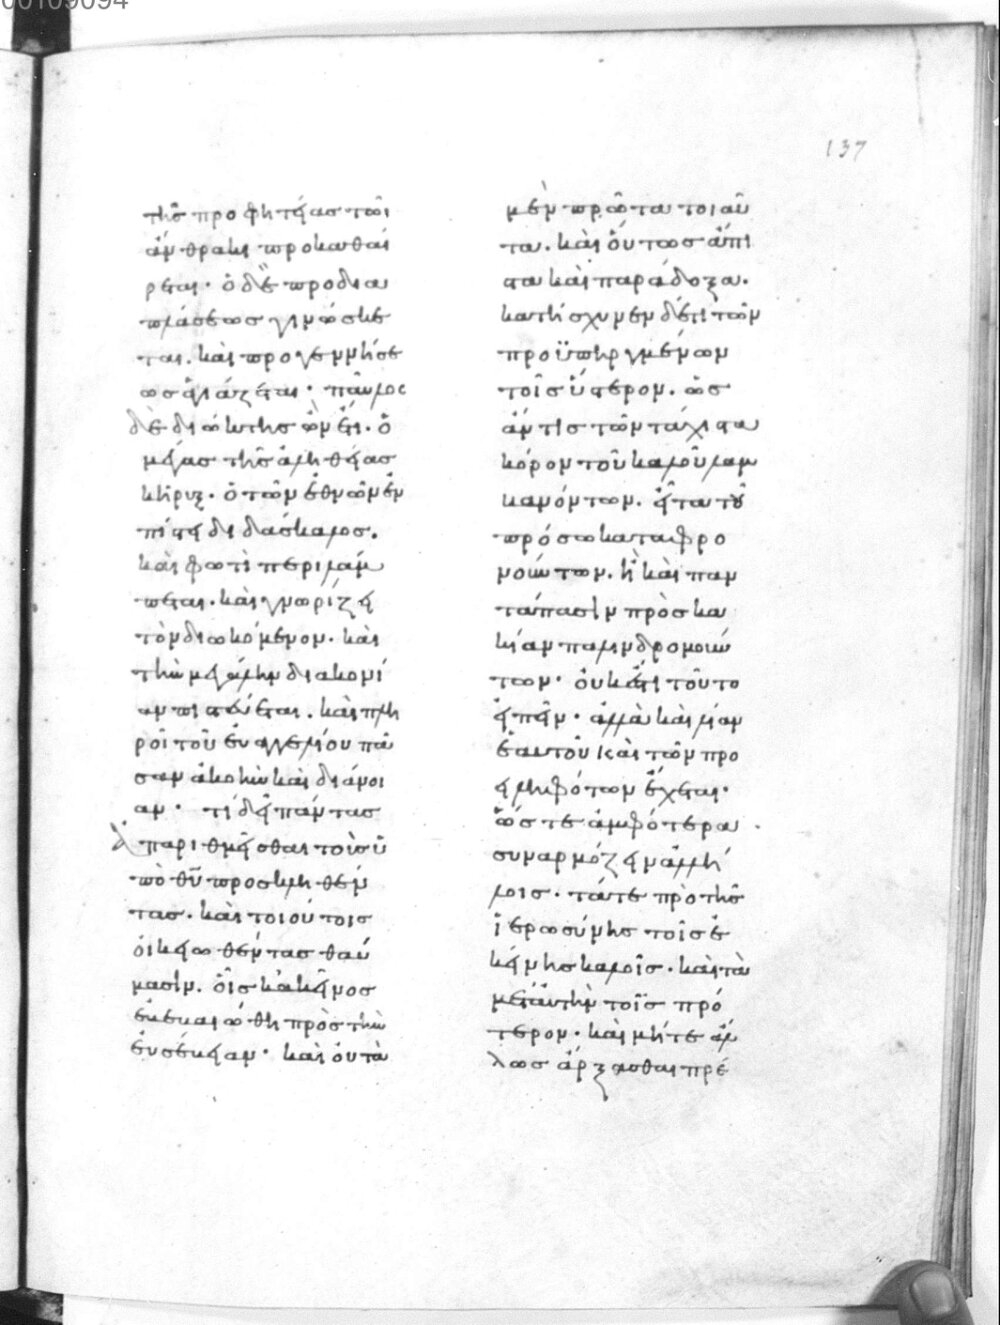 00109094
137
τῆς προφητείας τῶι
ἄνθρακι προκαθαί
ρεται· ὁ δὲ προ δια
πλάσεως γινώσκε
ται. καὶ προ γεννήσε
ως ἁγιάζεται· παῦλος
δὲ διώκτης ὢν ἔτι. ὁ
μέγας τῆς ἀληθείας
κῆρυξ. ὁ τῶν ἐθνῶν ἐν
πίστει διδάσκαλος.
καὶ φωτὶ περιλάμ
πεται. καὶ γνωρίζει
τὸν διωκόμενον. καὶ
τὴν μεγάλην διακονί
αν πιστεύεται. καὶ πλη
ροῖ τοῦ εὐαγγελίου πᾶ
σαν ἀκοὴν καὶ διάνοι
αν· τί δεῖ πάντας
ἀπαριθμεῖσθαι τοὺς ὑ
πὸ θυ προσκληθέν
τας. καὶ τοιούτοις
οἰκειωθέντας θαύ
μασιν. οἷς κἀκεῖνος
ἐβεβαιώθη πρὸς τὴν
εὐσέβειαν· καὶ οὐ τὰ
μὲν πρῶτα τοιαῦ
τα. καὶ οὕτως ἄπι
στα καὶ παράδοξα.
κατήσχυνεν δέ τι τῶν
προϋπηργμένων
τοῖς ὕστερον. ὡς
ἄν τις τῶν τάχιστα
κόρον τοῦ καλοῦ λαμ
βανόντων. εἶτα τοῦ
πρόσω καταφρο
νούντων. ἢ καὶ παν
τάπασιν πρὸς κα
κίαν παλινδρομούν
των. οὐκ ἔστι τοῦτο
εἰπεῖν· ἀλλὰ καὶ λίαν
ἑαυτοῦ καὶ τῶν προ
ειληφότων ἔχεται·
ὥστε ἀμφότερα
συναρμόζειν ἀλλή
λοις. τά τε πρὸ τῆς
ἱερωσύνης τοῖς ἐ
κείνης καλοῖς. καὶ τὰ
μετ' αὐτὴν τοῖς πρό
τερον. καὶ μήτε ἄλ
λως ἄρξασθαι πρέ